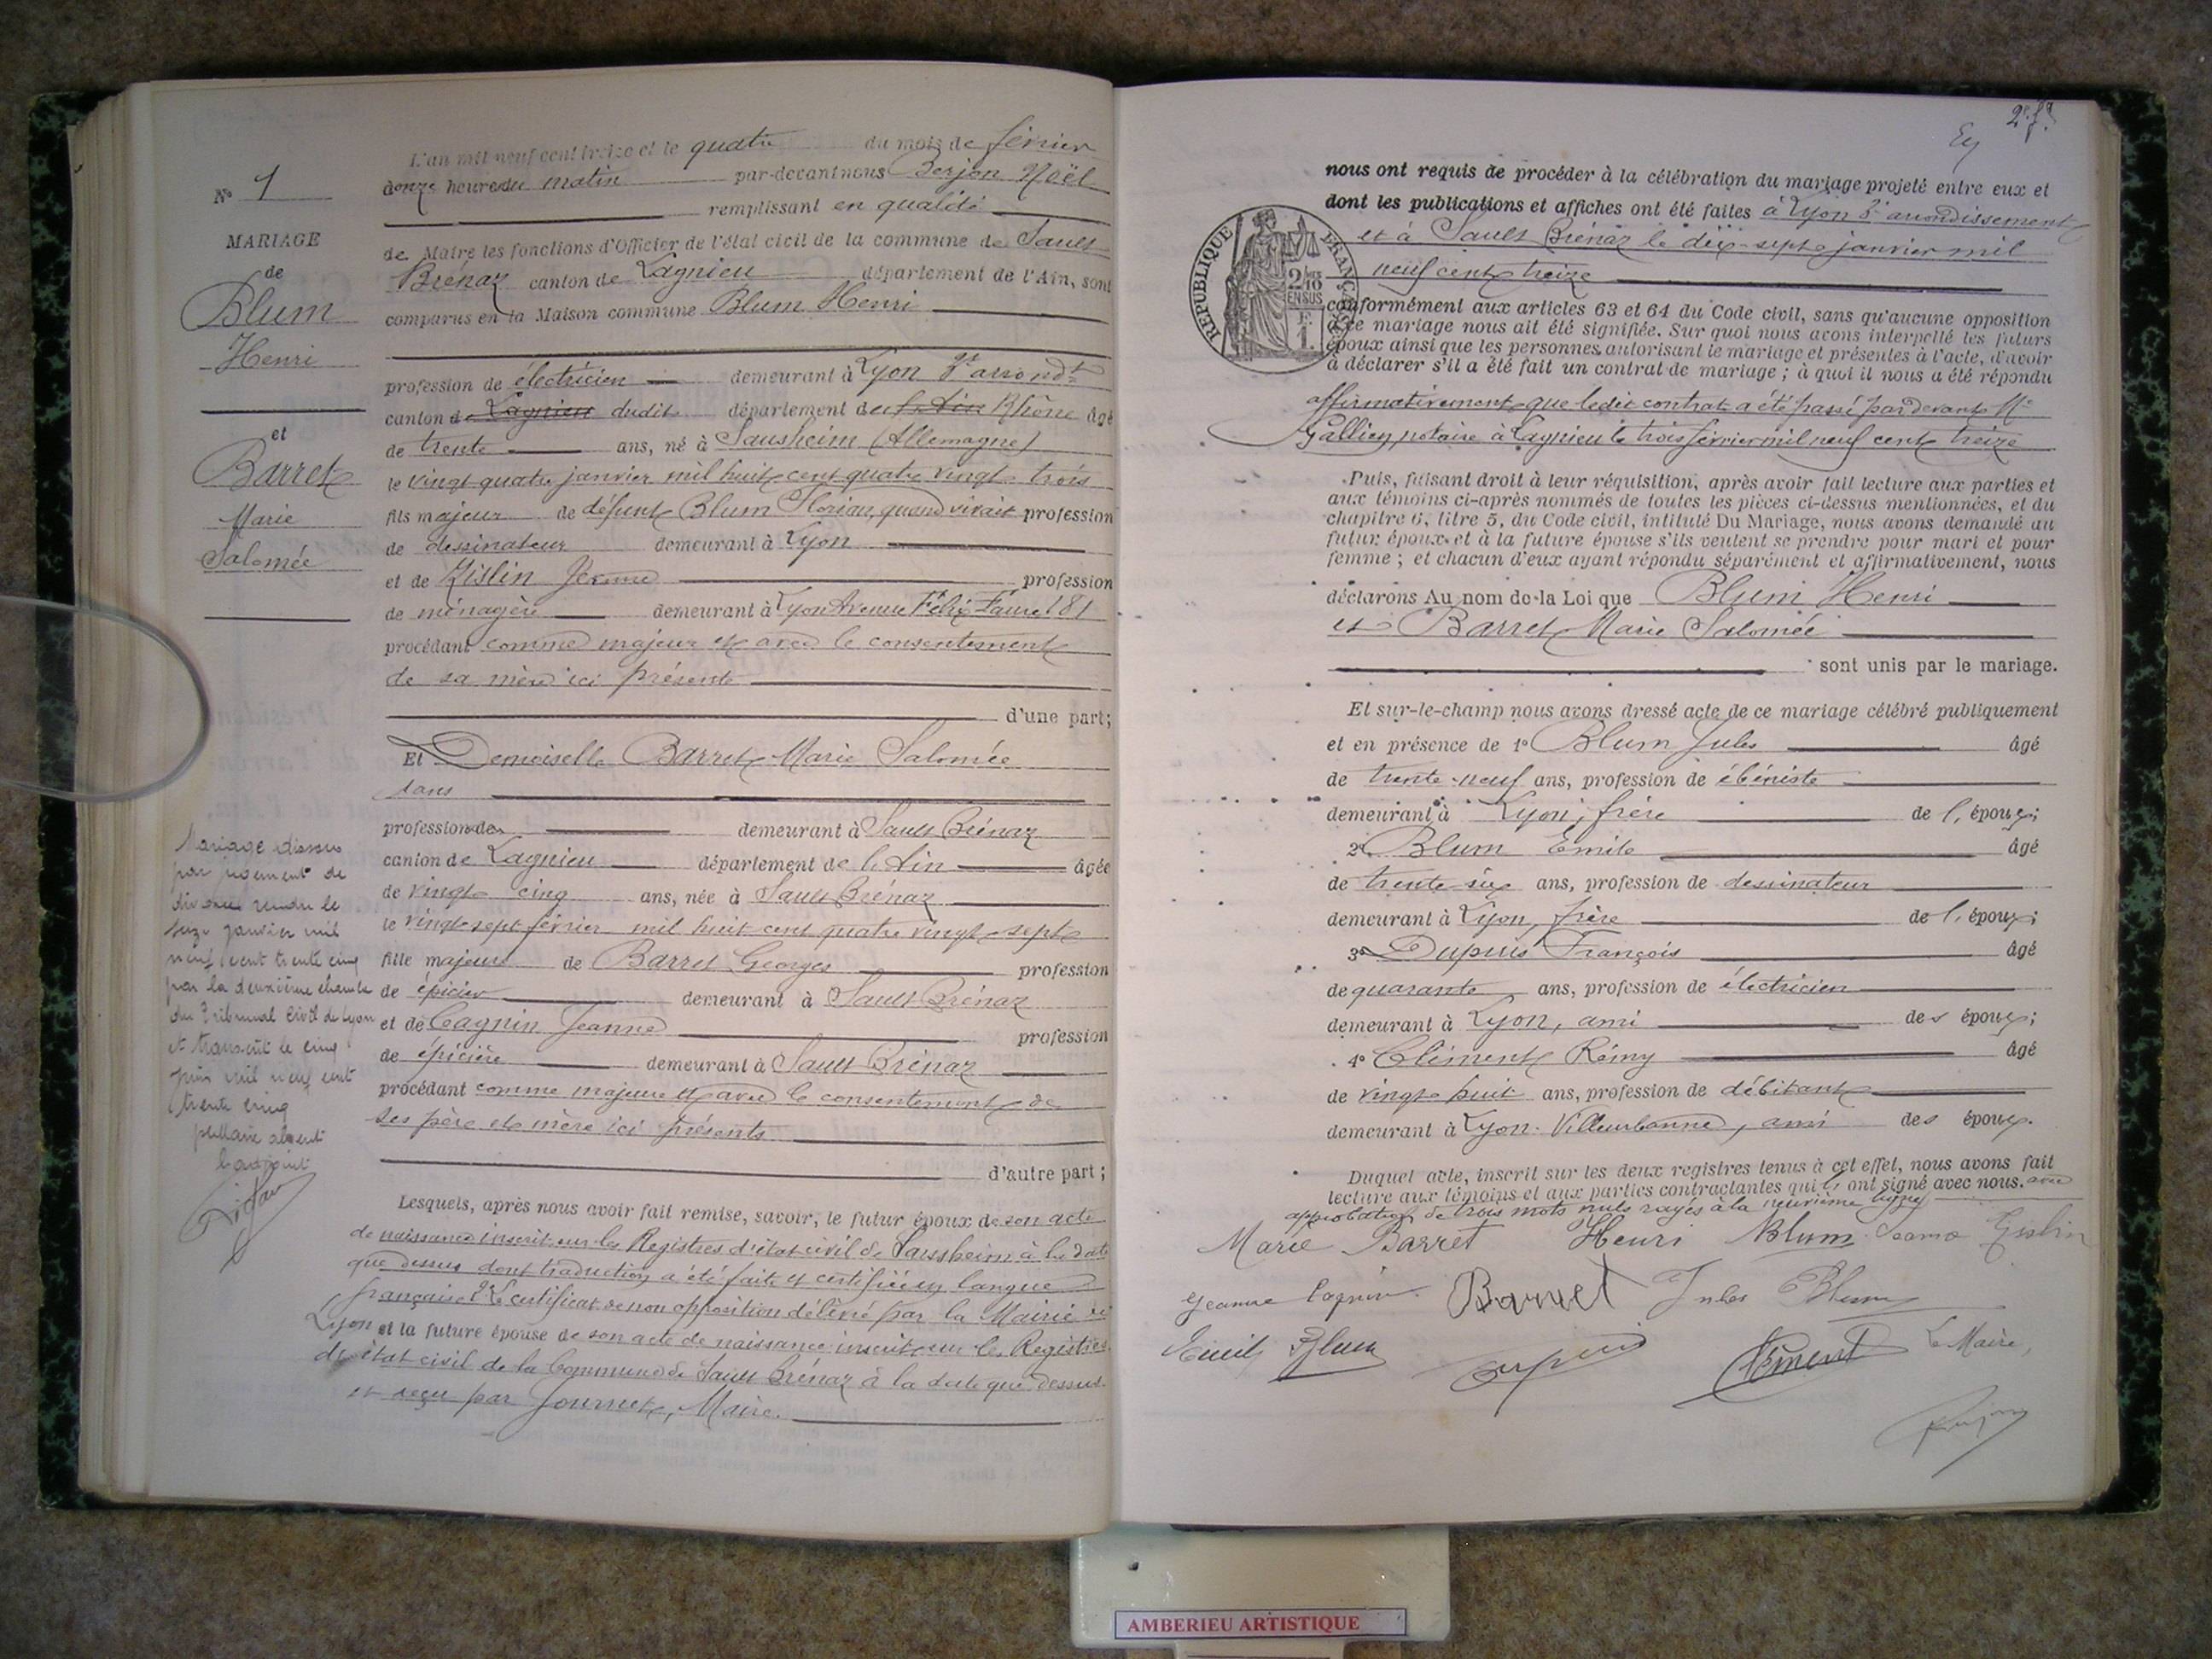 N° 1
MARIAGE
de
Blum
Henri
et
Barret
Marie
Salomée
Mariage dissous
par jugement de
divorce rendu le
seize janvier mil
neuf cent trente cinq
par la deuxième chambre
du Tribunal Civil de Lyon
et transcrit le cinq
juin mil neuf cent
trente cinq
absent
L'adjoint
L'an mil neuf cent treize et le quatre du mois de février
onze heures du matin par-devant nous Berjon Noël
remplissant en qualité
de Maire les fonctions d'Officier de l'état civil de la commune de Sault
Brénaz canton de Lagnieu département de l'Ain, sont
comparus en la Maison commune Blum Henri
profession de électricien demeurant à Lyon 3e arrondt
canton de Lagnieu dudit département de l'Ain Rhône âgé
de trente ans, né à Sausheim (Allemagne)
le vingt quatre janvier mil huit cent quatre vingt trois
fils majeur de défunt Blum Florian, quand vivait profession
de dessinateur demeurant à Lyon
et de Kislin Jeanne profession
de ménagère demeurant à Lyon Avenue Félix Faure 181
procédant comme majeur et avec le consentement
de sa mère ici présente
d'une part;
Et Demoiselle Barret Marie Salomée
sans
profession de demeurant à Sault Brénaz
canton de Lagnieu département de l'Ain âgée
de vingt cinq ans, née à Sault Brénaz
le vingt sept février mil huit cent quatre vingt sept
fille majeure de Barret Georges profession
de épicier demeurant à Sault Brénaz
et de Cagnin Jeanne profession
de épicière demeurant à Sault Brénaz
procédant comme majeure et avec le consentement de
ses père et mère ici présents
d'autre part;
Lesquels, après nous avoir fait remise, savoir, le futur époux de son acte
de naissance inscrit sur les Registres d'état civil de Saussheim à la date
que dessus dont traduction a été faite et certifiée en langue
française 2° Le certificat de non opposition délivré par la Mairie de
Lyon et la future épouse de son acte de naissance inscrit sur les Registres
de état civil de la Commune de Sault Brénaz à la date que dessus
et reçu par Journet, Maire.
2e f.
nous ont requis de procéder à la célébration du mariage projeté entre eux et
dont les publications et affiches ont été faites à Lyon 3e arrondissement
et à Sault Brénaz le dix-sept janvier mil
neuf cent treize
RÉPUBLIQUE FRANÇAISE
2/10
EN SUS
conformément aux articles 63 et 64 du Code civil, sans qu'aucune opposition
à ce mariage nous ait été signifiée. Sur quoi nous avons interpellé les futurs
époux ainsi que les personnes autorisant le mariage et présentes à l'acte, d'avoir
à déclarer s'il a été fait un contrat de mariage ; à quoi il nous a été répondu
affirmativement que ledit contrat a été passé par devant Me
Gallien, notaire à Lagnieu le trois février mil neuf cent treize
Puis, faisant droit à leur réquisition, après avoir fait lecture aux parties et
aux témoins ci-après nommés de toutes les pièces ci-dessus mentionnées, et du
chapitre 6, titre 5, du Code civil, intitulé Du Mariage, nous avons demandé au
futur époux et à la future épouse s'ils veulent se prendre pour mari et pour
femme ; et chacun d'eux ayant répondu séparément et affirmativement, nous
déclarons Au nom de la Loi que Blum Henri
et Barret Marie Salomée
sont unis par le mariage.
Et sur-le-champ nous avons dressé acte de ce mariage célébré publiquement
et en présence de 1° Blum Jules âgé
de trente-neuf ans, profession de ébéniste
demeurant à Lyon, frère de l'époux;
2° Blum Emile âgé
de trente-six ans, profession de dessinateur
demeurant à Lyon, frère de l'époux;
3° Dupuis François âgé
de quarante ans, profession de électricien
demeurant à Lyon, ami des époux;
4° Clément Rémy âgé
de vingt huit ans, profession de débitant
demeurant à Lyon-Villeurbanne, ami des époux.
Duquel acte, inscrit sur les deux registres tenus à cet effet, nous avons fait
lecture aux témoins et aux parties contractantes qui l'ont signé avec nous. avec
approbation de trois mots nuls rayés à la neuvième ligne
Marie Barret Henri Blum
Jeanne Cagnin Barret Jules Blum
Emile Blum Dupuis Clément Le Maire,
Berjon
AMBERIEU ARTISTIQUE